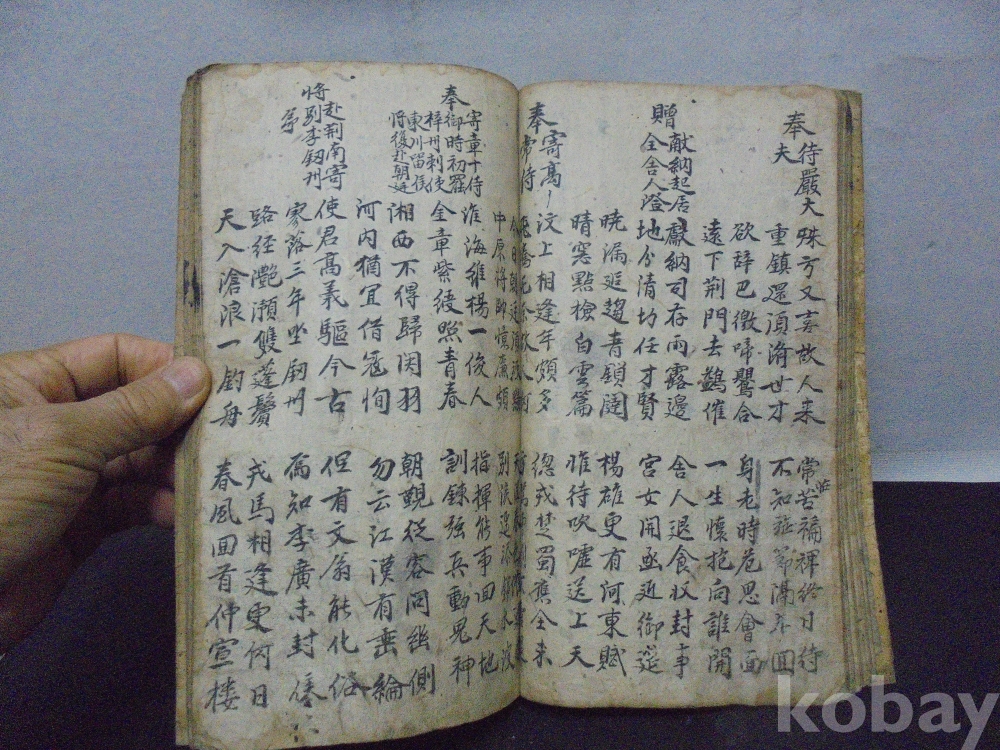 奉待嚴大夫
殊方又喜故人來 常苦褊裨終日待
怪
重鎮還須済世才 不知旌節隔年回
欲辞巴徼啼鶯合 身老時危思會面
遠下荆門去鷁催 一生懷抱向誰開
贈獻納起居全舍人澄
獻納司存雨露邊 舍人退食収封事
地分清坊任才賢 宮女開函近御筵
曉漏追趨青鎖闥 楊雄更有河東賦
晴窓點檢白雲篇 惟待吹噓送上天
奉寄高常侍
汶上相逢年頗多 總戎楚蜀應全未
今日朝廷須
中原將帥憶廉頗 別淚遥添錦水波
奉寄章十侍御時初罷梓州刺使東川留後將復赴朝廷
淮海維楊一俊人 指揮能事回天地
金章紫綬照青春 訓鍊强兵動鬼神
湘西不得歸関羽 朝覲從容问幽側
河內猶宜借寇恂 勿云江漢有垂綸
將赴荆南寄別李釼州弟
使君高義驅今古 但有文翁能化俗
寥落三年坐釼州 焉知李廣未封侯
路經灧澦雙蓬鬢 戎馬相逢更何日
天入滄浪一釣舟 春風回首仲宣樓
kobay